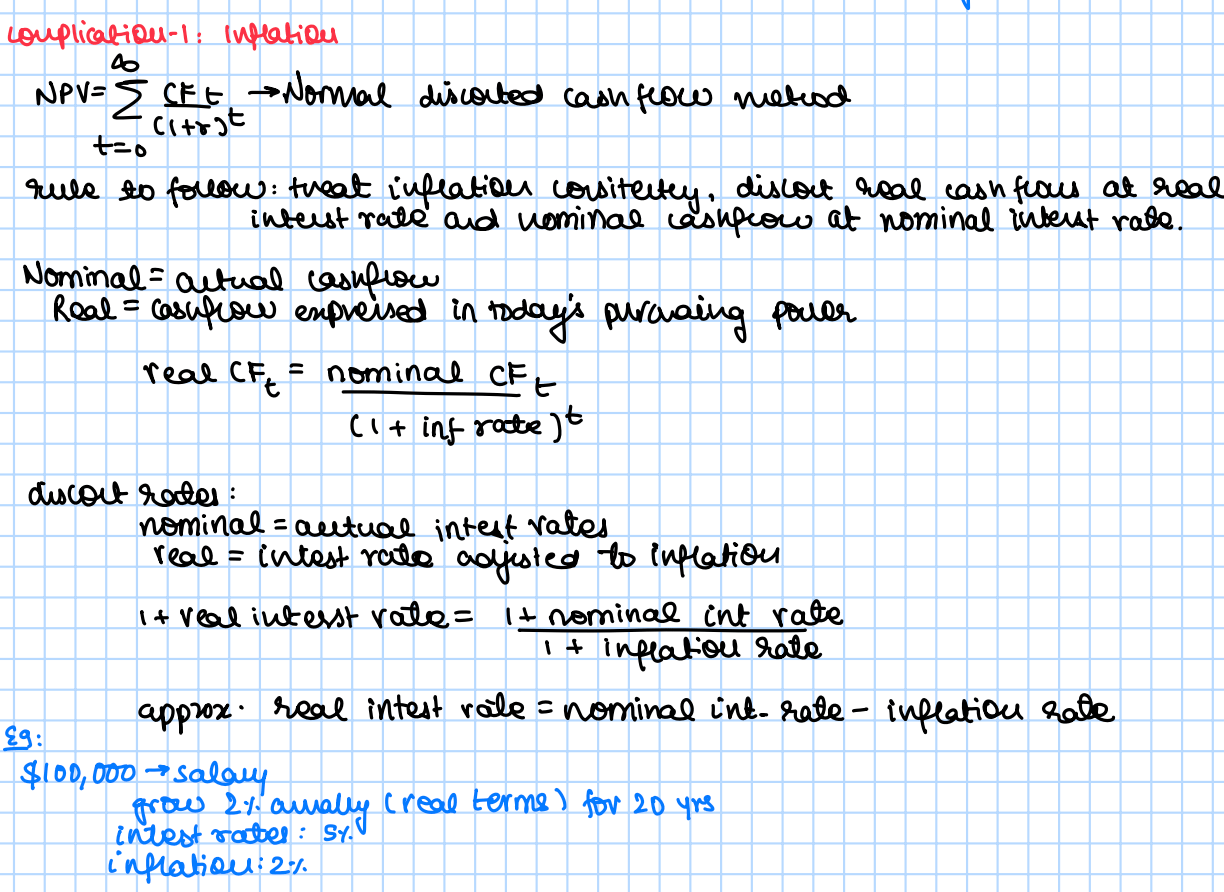 complication-1: Inflation
NPV = ∞ ∑ t=0 CFt / (1+r)^t → Normal discounted cashflow method
rule to follow: treat inflation consistently, discount real cash flows at real
interest rate and nominal cashflow at nominal interest rate.
Nominal = actual cashflow
Real = cashflow expressed in today's purchasing power
real CFt = nominal CFt / (1 + inf rate)^t
discount rates:
nominal = actual interest rates
real = interest rate adjusted to inflation
1 + real interest rate = 1 + nominal int rate / 1 + inflation rate
approx. real interest rate = nominal int. rate - inflation rate
Eg:
$100,000 → salary
grow 2% annually (real terms) for 20 yrs
interest rates: 5%
inflation: 2%